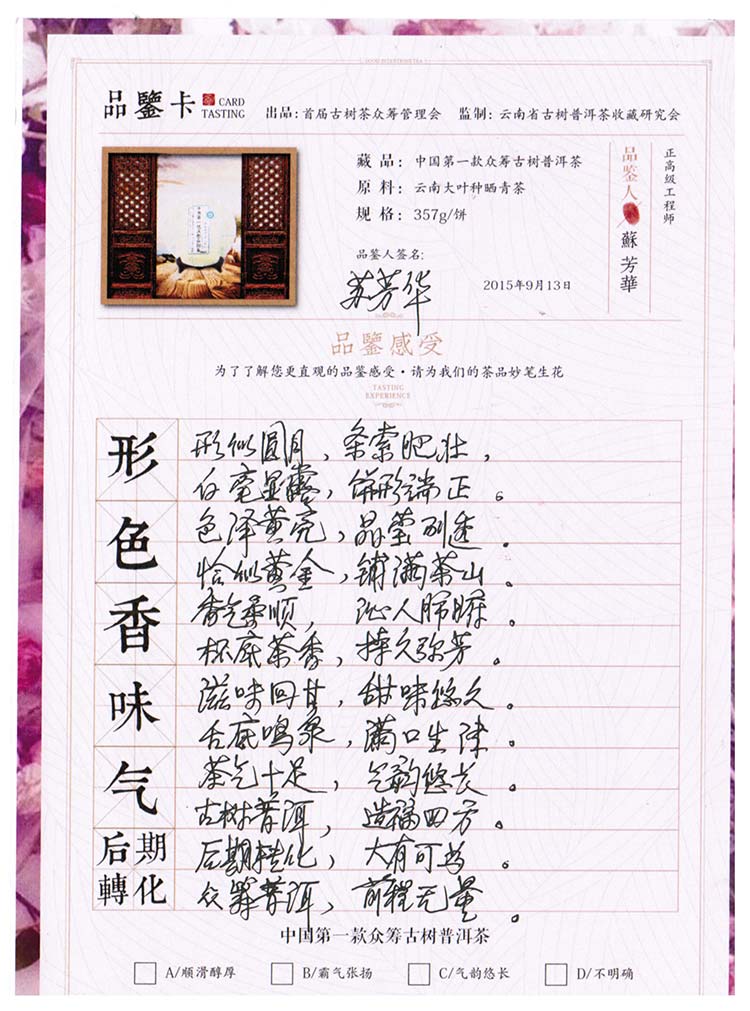 GOOD INTENTIONS TEA
品鑒卡 CARD TASTING 出品:首届古树茶众筹管理会 监制:云南省古树普洱茶收藏研究会
藏品:中国第一款众筹古树普洱茶
原料:云南大叶种晒青茶
规格:357g/饼
品鉴人签名:
苏芳华 2015年9月13日
品鑒人 蘇芳華
正高级工程师
品鑒感受
为了了解您更直观的品鉴感受·请为我们的茶品妙笔生花
TASTING
EXPERIENCE
形
形似圆月,条索肥壮,
白毫显露,饼形端正。
色
色泽黄亮,晶莹剔透。
恰似黄金,铺满茶山。
香
香气柔顺,沁人肺腑。
杯底茶香,持久弥芳。
味
滋味回甘,甜味悠久。
舌底鸣泉,满口生津。
气
茶气十足,气韵悠长。
古树普洱,造福四方。
后期
轉化
后期转化,大有可为。
众筹普洱,前程无量。
中国第一款众筹古树普洱茶
A/顺滑醇厚 B/霸气张扬 C/气韵悠长 D/不明确